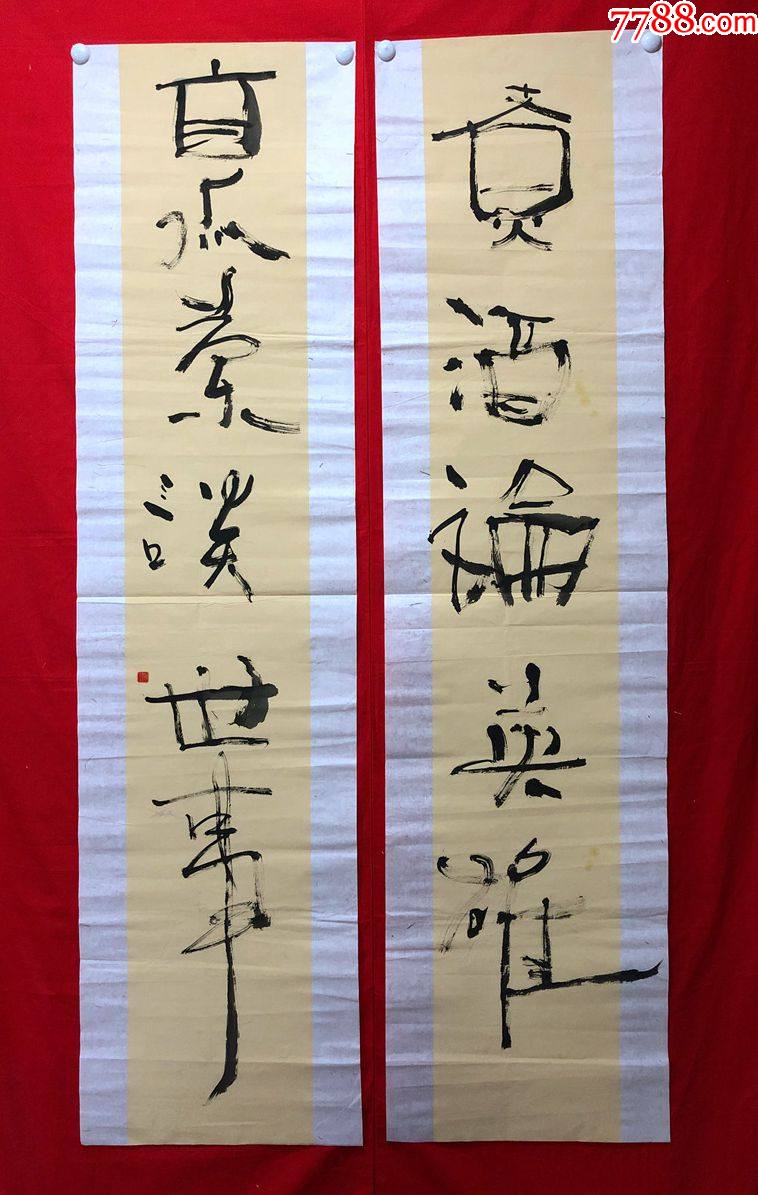 7788.com
煮酒論英雄
烹茶談世事